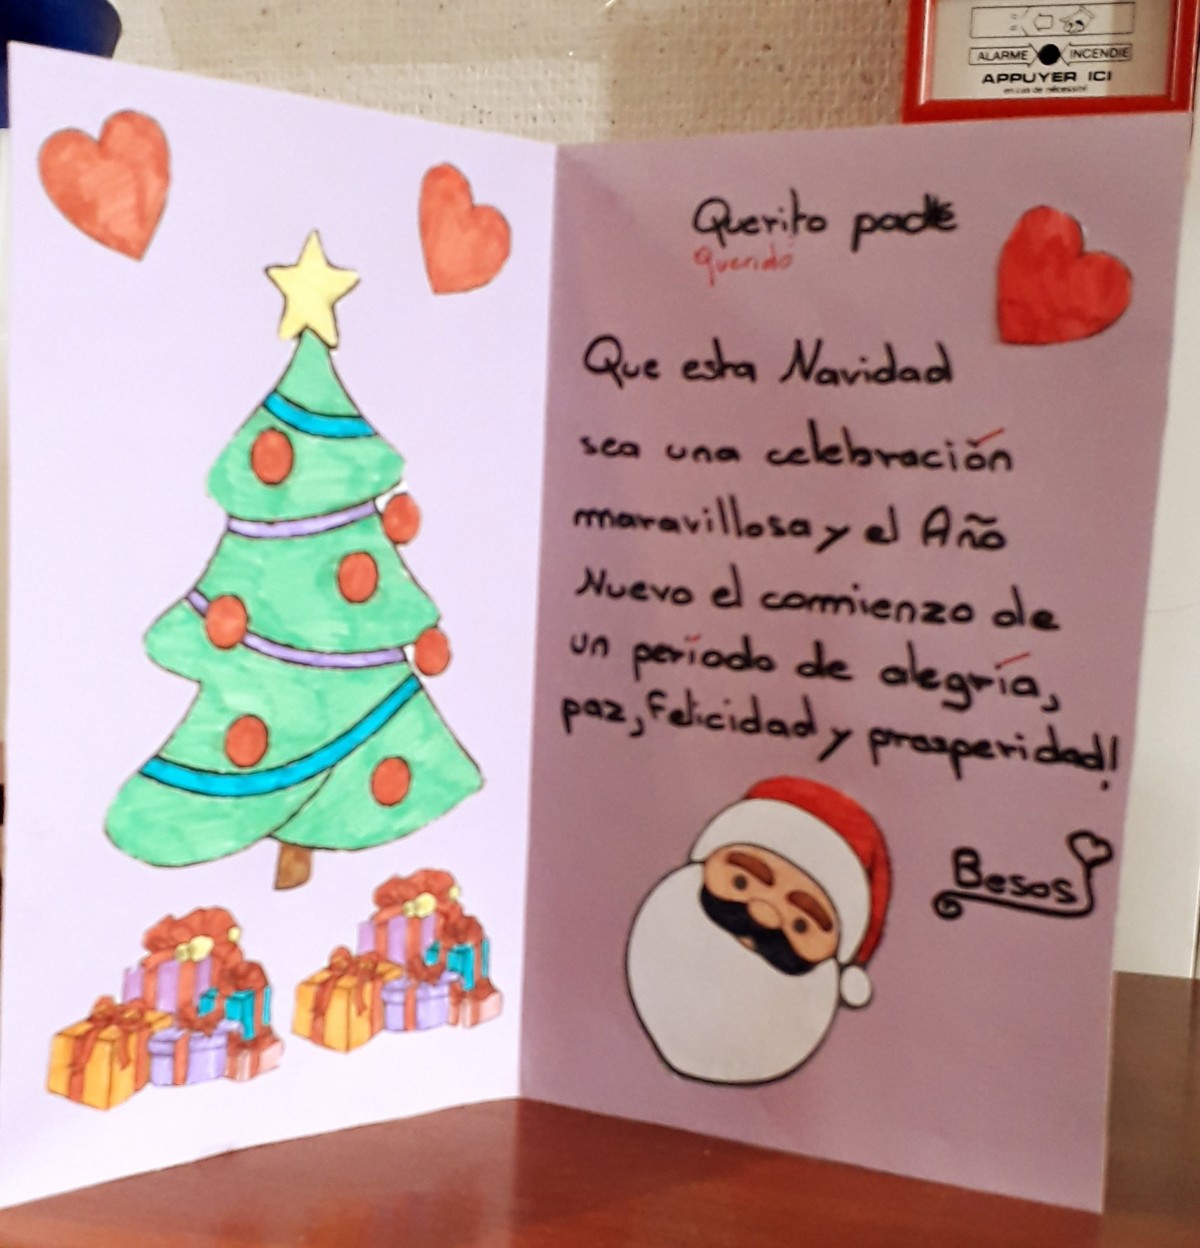 ALARME INCENDIE
APPUYER ICI
en cas de nécessité
Querito padre
Querido
Que esta Navidad
sea una celebración
maravillosa y el Año
Nuevo el comienzo de
un período de alegría,
paz, felicidad y prosperidad!
Besos